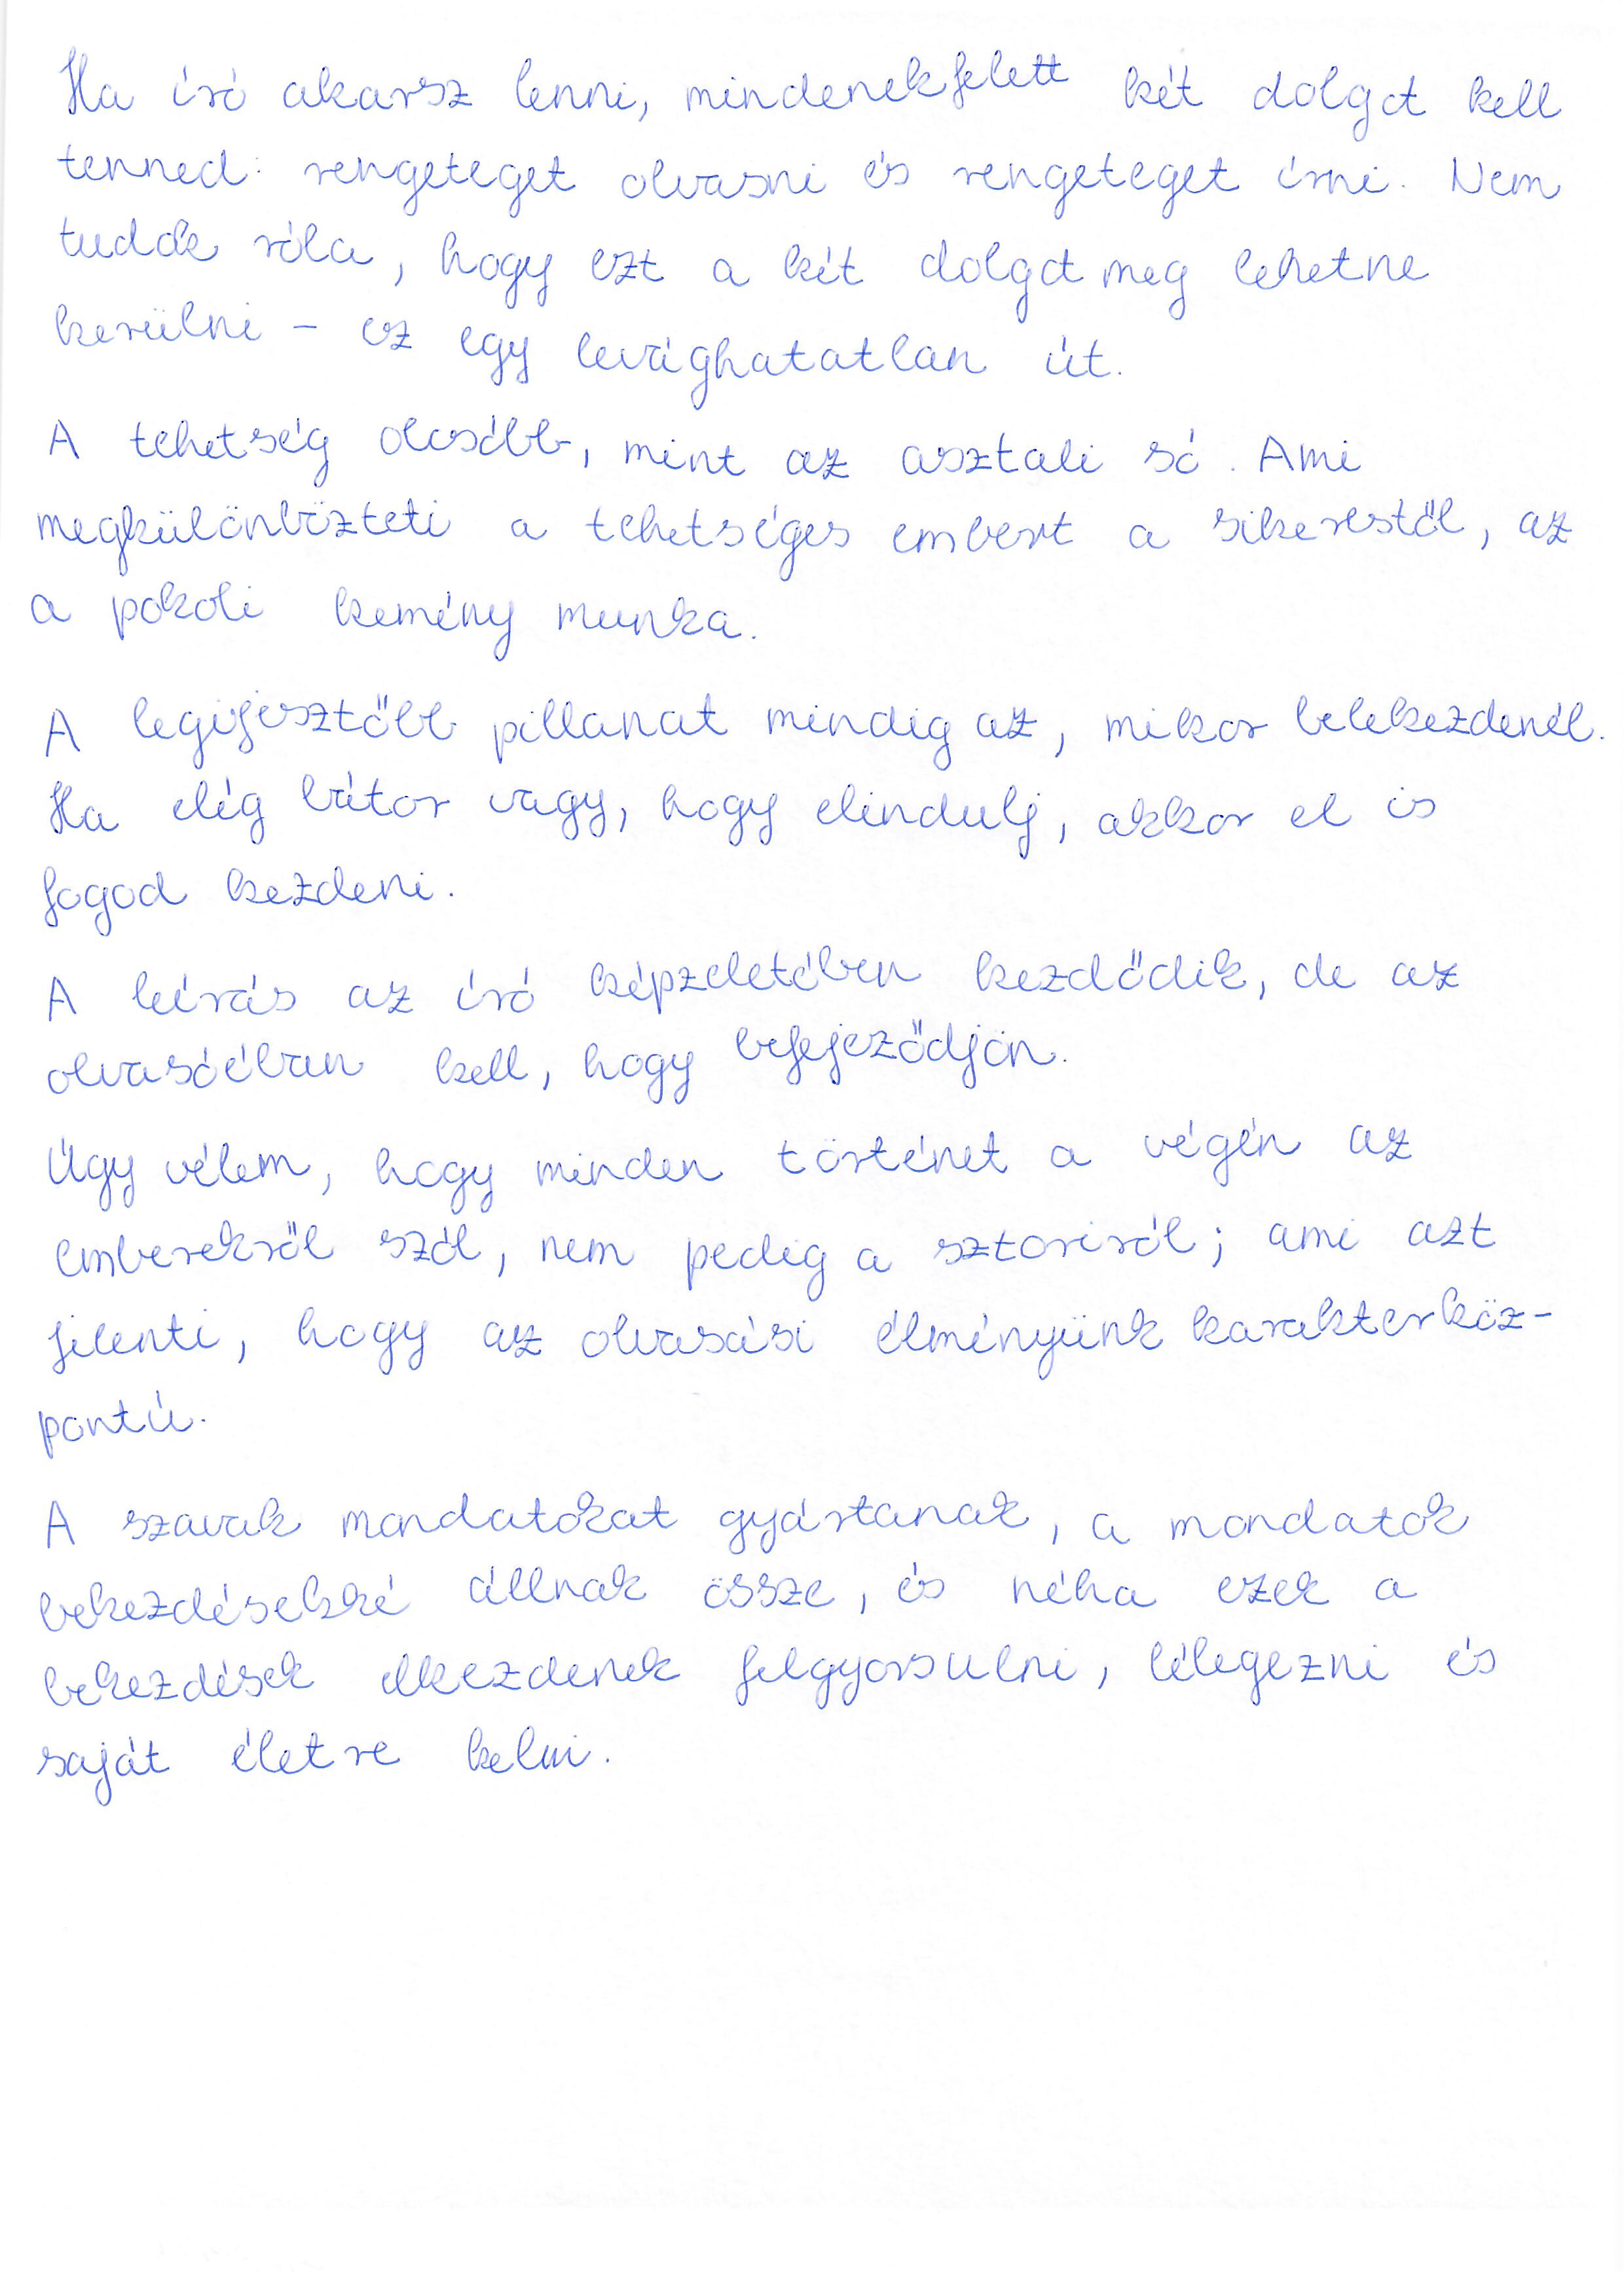 Ha író akarsz lenni, mindenekfelett két dolgot kell
tenned: rengeteget olvasni és rengeteget írni. Nem
tudok róla, hogy ezt a két dolgot meg lehetne
kerülni – ez egy levághatatlan út.
A tehetség olcsóbb, mint az asztali só. Ami
megkülönbözteti a tehetséges embert a sikerestől, az
a pokoli kemény munka.
A legijesztőbb pillanat mindig az, mikor belekezdenél.
Ha elég bátor vagy, hogy elindulj, akkor el is
fogod kezdeni.
A leírás az író képzeletében kezdődik, de az
olvasóéban kell, hogy befejeződjön.
Úgy vélem, hogy minden történet a végén az
emberekről szól, nem pedig a sztoriról; ami azt
jelenti, hogy az olvasási élményünk karakterköz-
pontú.
A szavak mondatokat gyártanak, a mondatok
bekezdésekké állnak össze, és néha ezek a
bekezdések elkezdenek felgyorsulni, lélegezni és
saját életre kelni.